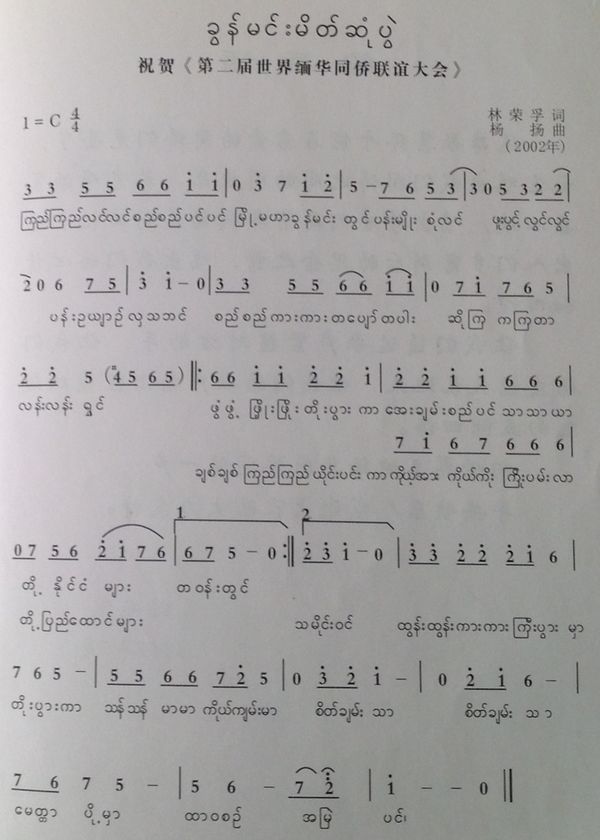 ခွန်မင်းမိတ်ဆုံပွဲ
祝贺《第二届世界缅华同侨联谊大会》
1 = C 4/4
林荣孚词
杨扬曲
(2002年)
3 3 5 5 6 6 i i | 0 3 7 i 2 | 5 - 7 6 5 3 | 3 0 5 3 2 2 |
ကြည်ကြည်လင်လင်စည်စည်ပင်ပင် မြို့မဟာခွန်မင်း တွင်ပန်းမျိုး စုံလင် ဖူးပွင့်လွင်လွင်
2 0 6 7 5 | 3 i - 0 | 3 3 5 5 6 6 i i | 0 7 i 7 6 5 |
ပန်းဥယျာဉ် လှသဘင် စည်စည်ကားကား တပျော်တပါး ဆိုကြ ကကြတာ
2 2 5 (#4 5 6 5) ‖: 6 6 i i 2 2 i | 2 2 i i 6 6 6 |
လန်းလန်း ရွှင် ဖွံ့ဖွံ့ ဖြိုးဖြိုး တိုးပွား ကာ အေးချမ်းစည်ပင် သာသာယာ
7 i 6 7 6 6 6 |
ချစ်ချစ် ကြည်ကြည် ယိုင်းပင်း ကာ ကိုယ့်အား ကိုယ်ကိုး ကြိုးပမ်းလာ
1 2
0 7 5 6 2 i 7 6 | 6 7 5 - 0 :‖ 2 3 i - 0 | 3 3 2 2 2 i 6 |
တို့ နိုင်ငံ များ တဝန်းတွင်
တို့ပြည်ထောင်များ သမိုင်းဝင် ထွန်းထွန်းကားကား ကြီးပွား မှာ
7 6 5 - | 5 5 6 6 7 2 5 | 0 3 2 i - | 0 2 i 6 - |
တိုးပွားကာ သန်သန် မာမာ ကိုယ်ကျမ်းမာ စိတ်ချမ်း သာ စိတ်ချမ်း သာ
7 6 7 5 - | 5 6 - 7 2 | i - - 0 ‖
မေတ္တာ ပို့မှာ ထာဝစဉ် အမြဲ ပင်၊